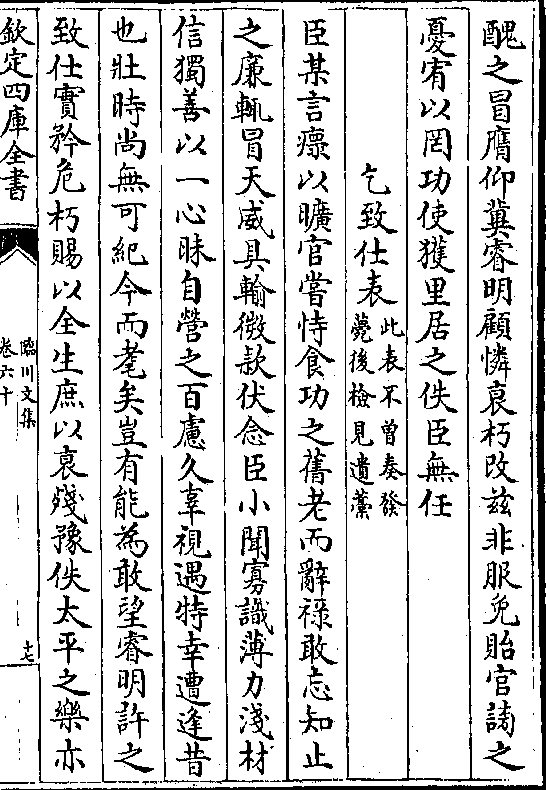 醜之冒膺仰冀睿明顧憐哀朽改茲非服免貽官謗之
憂宥以罔功使獲里居之佚臣無任
乞致仕表此表不曾奏發薨後檢見遺藁
臣某言瘝以曠官嘗恃食功之舊老而辭祿敢忘知止
之廉輒冒天威具輸微款伏念臣小聞寡識薄力淺材
信獨善以一心昧自營之百慮久辜視遇特幸遭逢昔
也壯時尚無可紀今而耄矣豈有能為敢望睿明許之
致仕實矜危朽賜以全生庶以衰殘豫佚太平之樂亦
欽定四庫全書
臨川文集
卷六十
十七